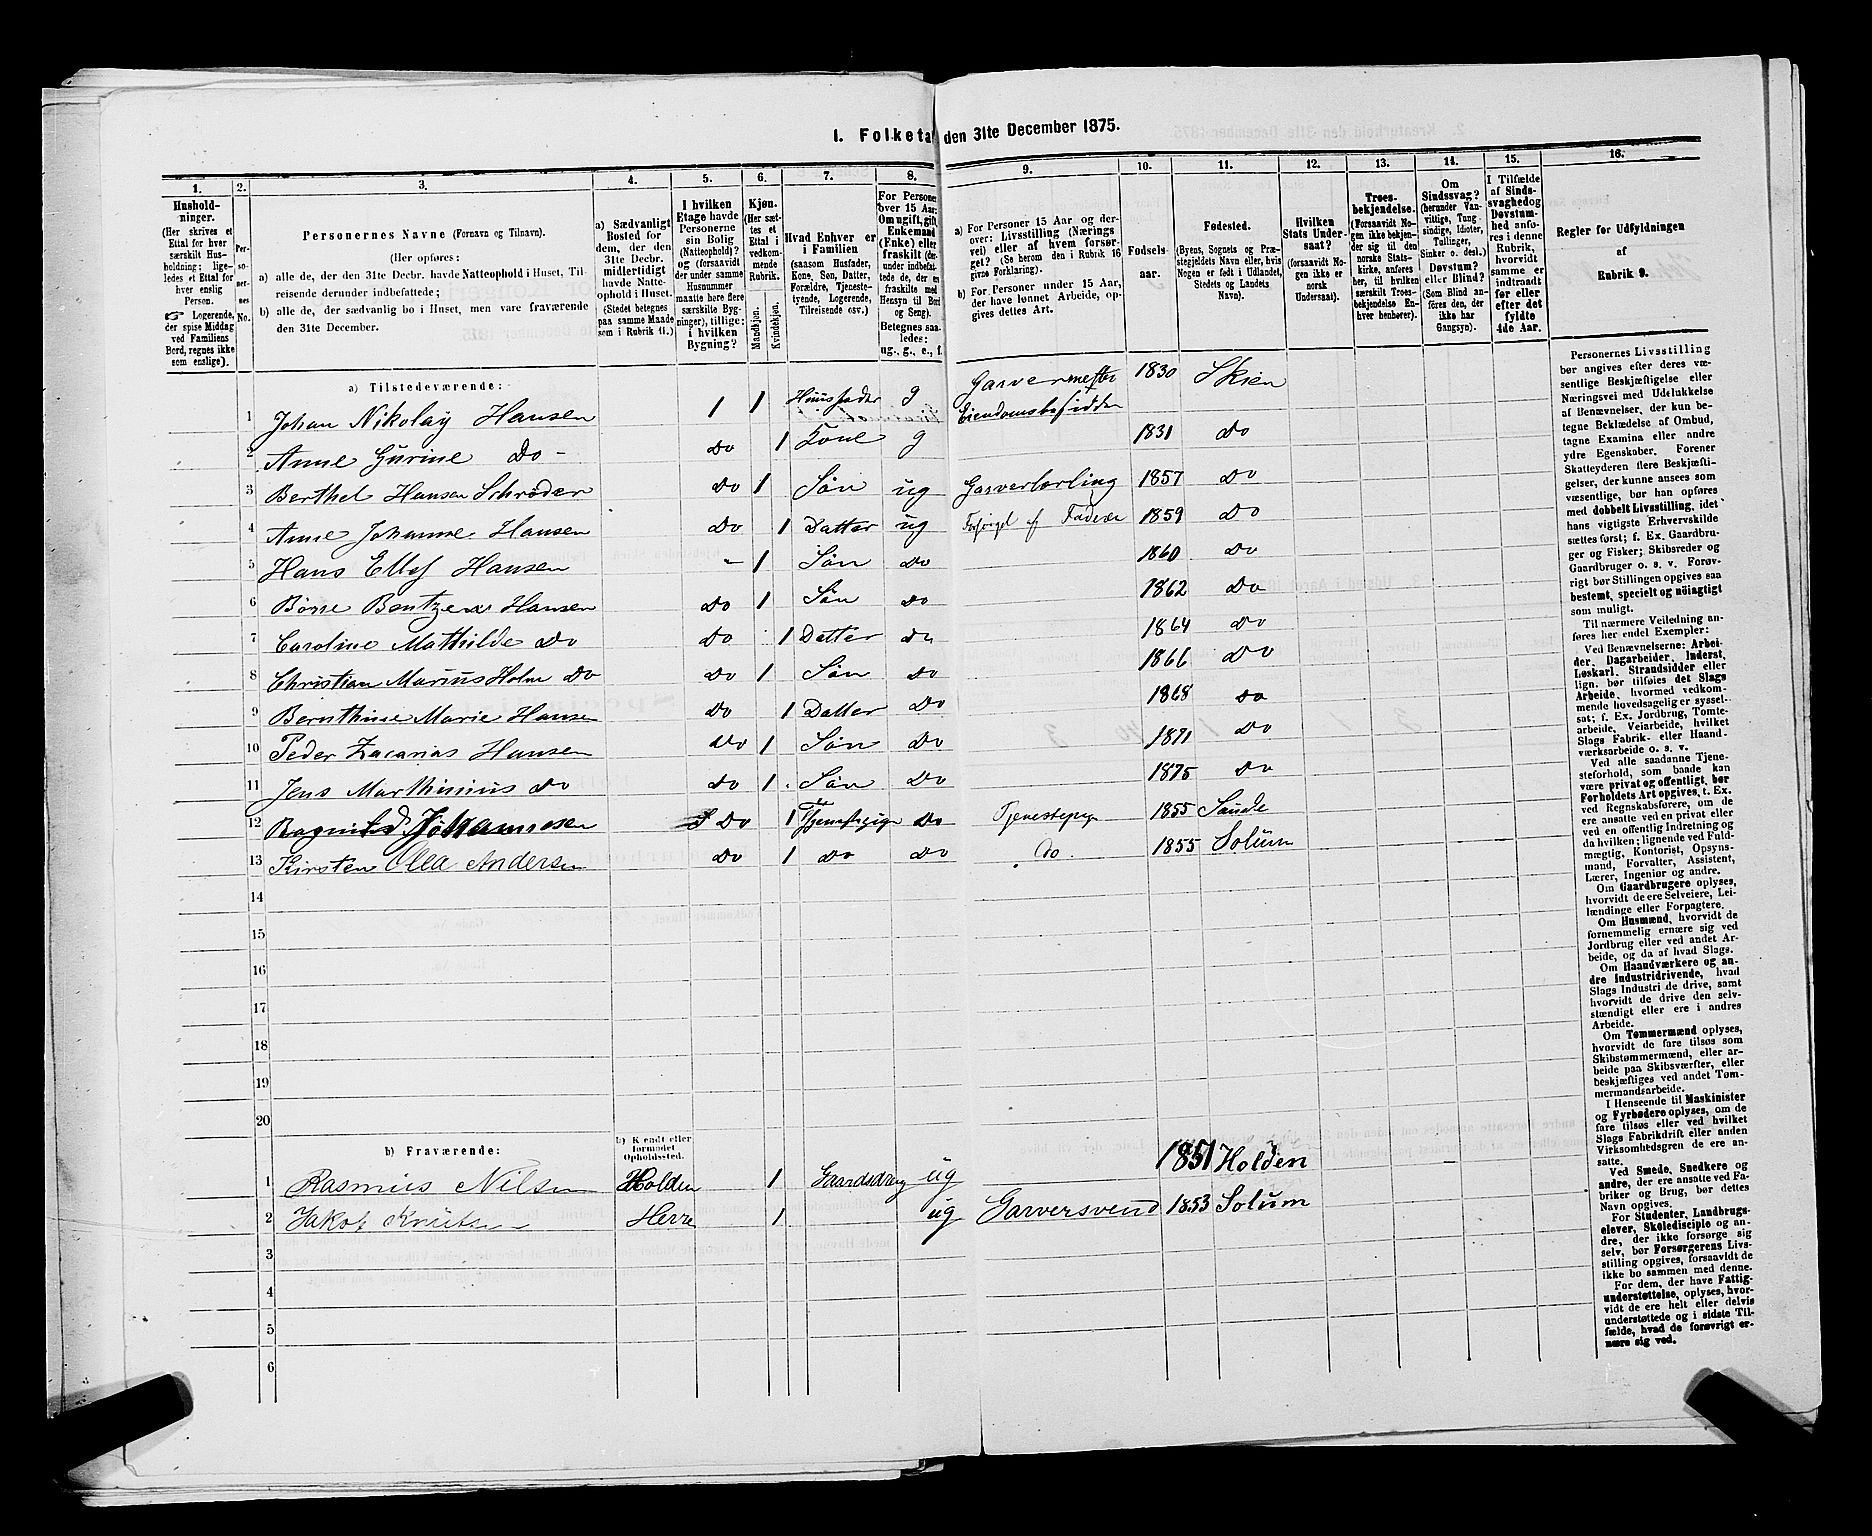 1. Folketa den 31te December 1875.
1. 2. 3. 4. 5. 6. 7. 8. 9. 10. 11. 12. 13. 14. 15. 16.
Hushold-
ninger.
(Her skrives et
Ettal for hver
særskilt Hus-
holdning: lige-
ledes et Ettal for
hver enslig
Person.
☞ Logerende,
der spise Middag
ved Familiens
Bord, regnes ikke
som enslige).
Per-
so-
ner-
nes
No.
Personernes Navne (Fornavn og Tilnavn).
(Her opføres:
a) alle de, der den 31te Decbr. havde Natteophold i Huset, Til-
reisende derunder indbefattede;
b) alle de, der sædvanlig bo i Huset, men vare fraværende
den 31te December.
a) Sædvanligt
Bosted for
dem, der den
31te Decbr.
midlertidigt
havde Natte-
ophold i Huset.
(Stedet betegnes
paa samme Maade
som i Rubrik 11.)
I hvilken
Etage havde
Personerne
sin Bolig
(Natteophold)?
og (forsaavidt
der under samme
Husnummer
maatte høre flere
særskilte Byg-
ninger), tillige:
i hvilken
Bygning?
Kjøn.
(Her sæt-
tes et
Ettal i
vedkom-
mende
Rubrik.
Mandkjøn.
Kvindekjøn.
Hvad Enhver er
i Familien
(saasom Husfader,
Kone, Søn, Datter,
Forældre, Tjeneste-
tyende, Logerende,
Tilreisende osv.)
For Persone
over 15 Aar:
Om ugift, gift
Enkemand
(Enke) eller
fraskilt (der-
under indbefat-
tede de, der er
fraskilte med
Hensyn til Bord
og Seng).
Betegnes saa-
ledes:
ug., g., e., f.
a) For Personer 15 Aar og der-
over: Livsstilling (Nærings
vei) eller af hvem forsør-
get? (Se herom den i Rubrik 16
givne Forklaring).
b) For Personer under 15 Aar,
der have lønnet Arbeide, op-
gives dettes Art.
Fødsels-
aar.
Fødested.
(Byens, Sognets og Præ-
stegjeldets Navn eller, hvis
Nogen er født i Udlandet,
Stedets og Landets
Navn).
Hvilken
Stats Under-
saat?
(forsaavidt No-
gen ikke er
norsk
Undersaat).
Troes-
bekjendelse.
(Forsaavidt No-
gen ikke bekjen-
der sig til den
norske Stats-
kirke, anføres
her, til hvilken
særskilt Troes-
bekjendelse En-
hver henhører).
Om
Sindssvag?
(herunder Van-
vittige, Tung-
sindige, Idioter,
Tullinger,
Sinker o. desl.)
Døvstum?
eller Blind?
(Som Blind an-
føres den, der
ikke har
Gangsyn).
I Tilfælde
af Sinds-
svaghed og
Døvstum-
hed anfø-
res i denne
Rubrik,
hvorvidt
samme er
indtraadt
før eller
efter det
fyldte
4de Aar.
Regler for Udfyldningen
af
Rubrik 9.
a) Tilstedeværende:
1 Johan Nikolay Hansen 1 1 Huusfader g Garvermester Eiendomsbesidder 1830 Skien
2 Anne Gurine do - do 1 Kone g 1831 do
3 Berthel Hansen Schrøder do 1 Søn ug Garverlærling 1857 do
4 Anne Johanne Hansen do 1 Datter ug Forsørget af Fader 1859 do
5 Hans Ellef Hansen - 1 Søn do 1860 do
6 Børre Bentzen Hansen do 1 Søn do 1862 do
7 Caroline Mathilde do do 1 Datter do 1864 do
8 Christian Marius Holm do do 1 Søn do 1866 do
9 Bernthine Marie Hansen do 1 Datter do 1868 do
10 Peder Zacarias Hansen do 1 Søn do 1871 do
11 Jens Marthinius do do 1 Søn do 1875 do
12 Ragnild Johannesen do 1 Tjenestpige do Tjenestepige 1855 Saude
13 Kirsten Olea Andersen do 1 do do do. 1855 Solum
14
15
16
17
18
19
20
b) Fraværende:
b) Kjendt eller
formodet
Opholdssted.
1 Rasmus Nilsen Holden 1 Gaardsdreng ug 1851 Holden
2 Jakob Knutsen Herre 1 ug Garversvend 1853 Solum
3
4
5
6
Personernes Livsstilling
bør angives efter deres væ-
sentlige Beskjæftigelse eller
Næringsvei med Udelukkelse
af Benævnelser, der kun be-
tegne Beklædelse af Ombud,
tagne Examina eller andre
ydre Egenskaber. Forener
Skatteyderen flere Beskjæfti-
gelser, der kunne ansees som
væsentlige, bør han opføres
med dobbelt Livsstilling, idet
hans vigtigste Erhvervskilde
sættes først; f. Ex. Gaardbru-
ger og Fisker; Skibsreder og
Gaardbruger o. s. v. Forøv-
rigt bør Stillingen opgives saa
bestemt, specielt og nøiagtigt
som muligt.
Til nærmere Veiledning an-
føres her endel Exempler:
Ved Benævnelserne: Arbei-
der, Dagarbeider, Inderst,
Løskarl, Strandsidder eller
lign. bør tilføies det Slags
Arbeide, hvormed vedkom-
mende hovedsagelig er syssel-
sat; f. Ex. Jordbrug, Tomte-
arbeide, Veiarbeide, hvilket
Slags Fabrik- eller Haand-
værksarbeide o. s. v.
Ved alle saadanne Tjene-
steforhold, som baade kan
være privat og offentligt, bør
Forholdets Art opgives, t. Ex.
ved Regnskabsførere, om de
ere ansatte ved en privat eller
ved en offentlig Indretning og
da hvilken; lignende ved Fuld-
mægtig, Kontorist, Opsyns-
mand, Forvalter, Assistent,
Lærer, Ingeniør og andre.
Om Gaardbrugere oplyses,
hvorvidt de ere Selveiere, Lei-
lændinge eller Forpagtere.
Om Husmænd, hvorvidt de
fornemmelig ernære sig ved
Jordbrug eller ved andet Ar-
beide, og da af hvad Slags.
Om Haandværkere og an-
dre Industridrivende, hvad
Slags Industri de drive, samt
hvorvidt de drive den selv-
stændigt eller ere i andres
Arbeide.
Om Tømmermænd oplyses,
hvorvidt de fare tilsøs som
Skibstømmermænd, eller ar-
beide paa Skibsværfter, eller
beskjæftiges ved andet Tøm-
mermandsarbeide.
I Henseende til Maskinister
og Fyrbødere oplyses, om de
fare tilsøs eller ved hvilket
Slags Fabrikdrift eller anden
Virksomhedsgren de ere an-
satte.
Ved Smede, Snedkere og
andre, der ere ansatte ved Fa-
briker og Brug, bør dettes
Navn opgives.
For Studenter, Landbrugs-
elever, Skoledisciple og an-
dre, der ikke forsørge sig
selv, bør Forsørgerens Livs-
stilling opgives, forsaavldt de
ikke bo sammen med denne.
For dem, der have Fattig-
understøttelse, oplyses, hvor-
vidt de ere helt eller delvis
understøttede og i sidste Til-
fælde, hvad de forøvrigt er-
nære sig ved.